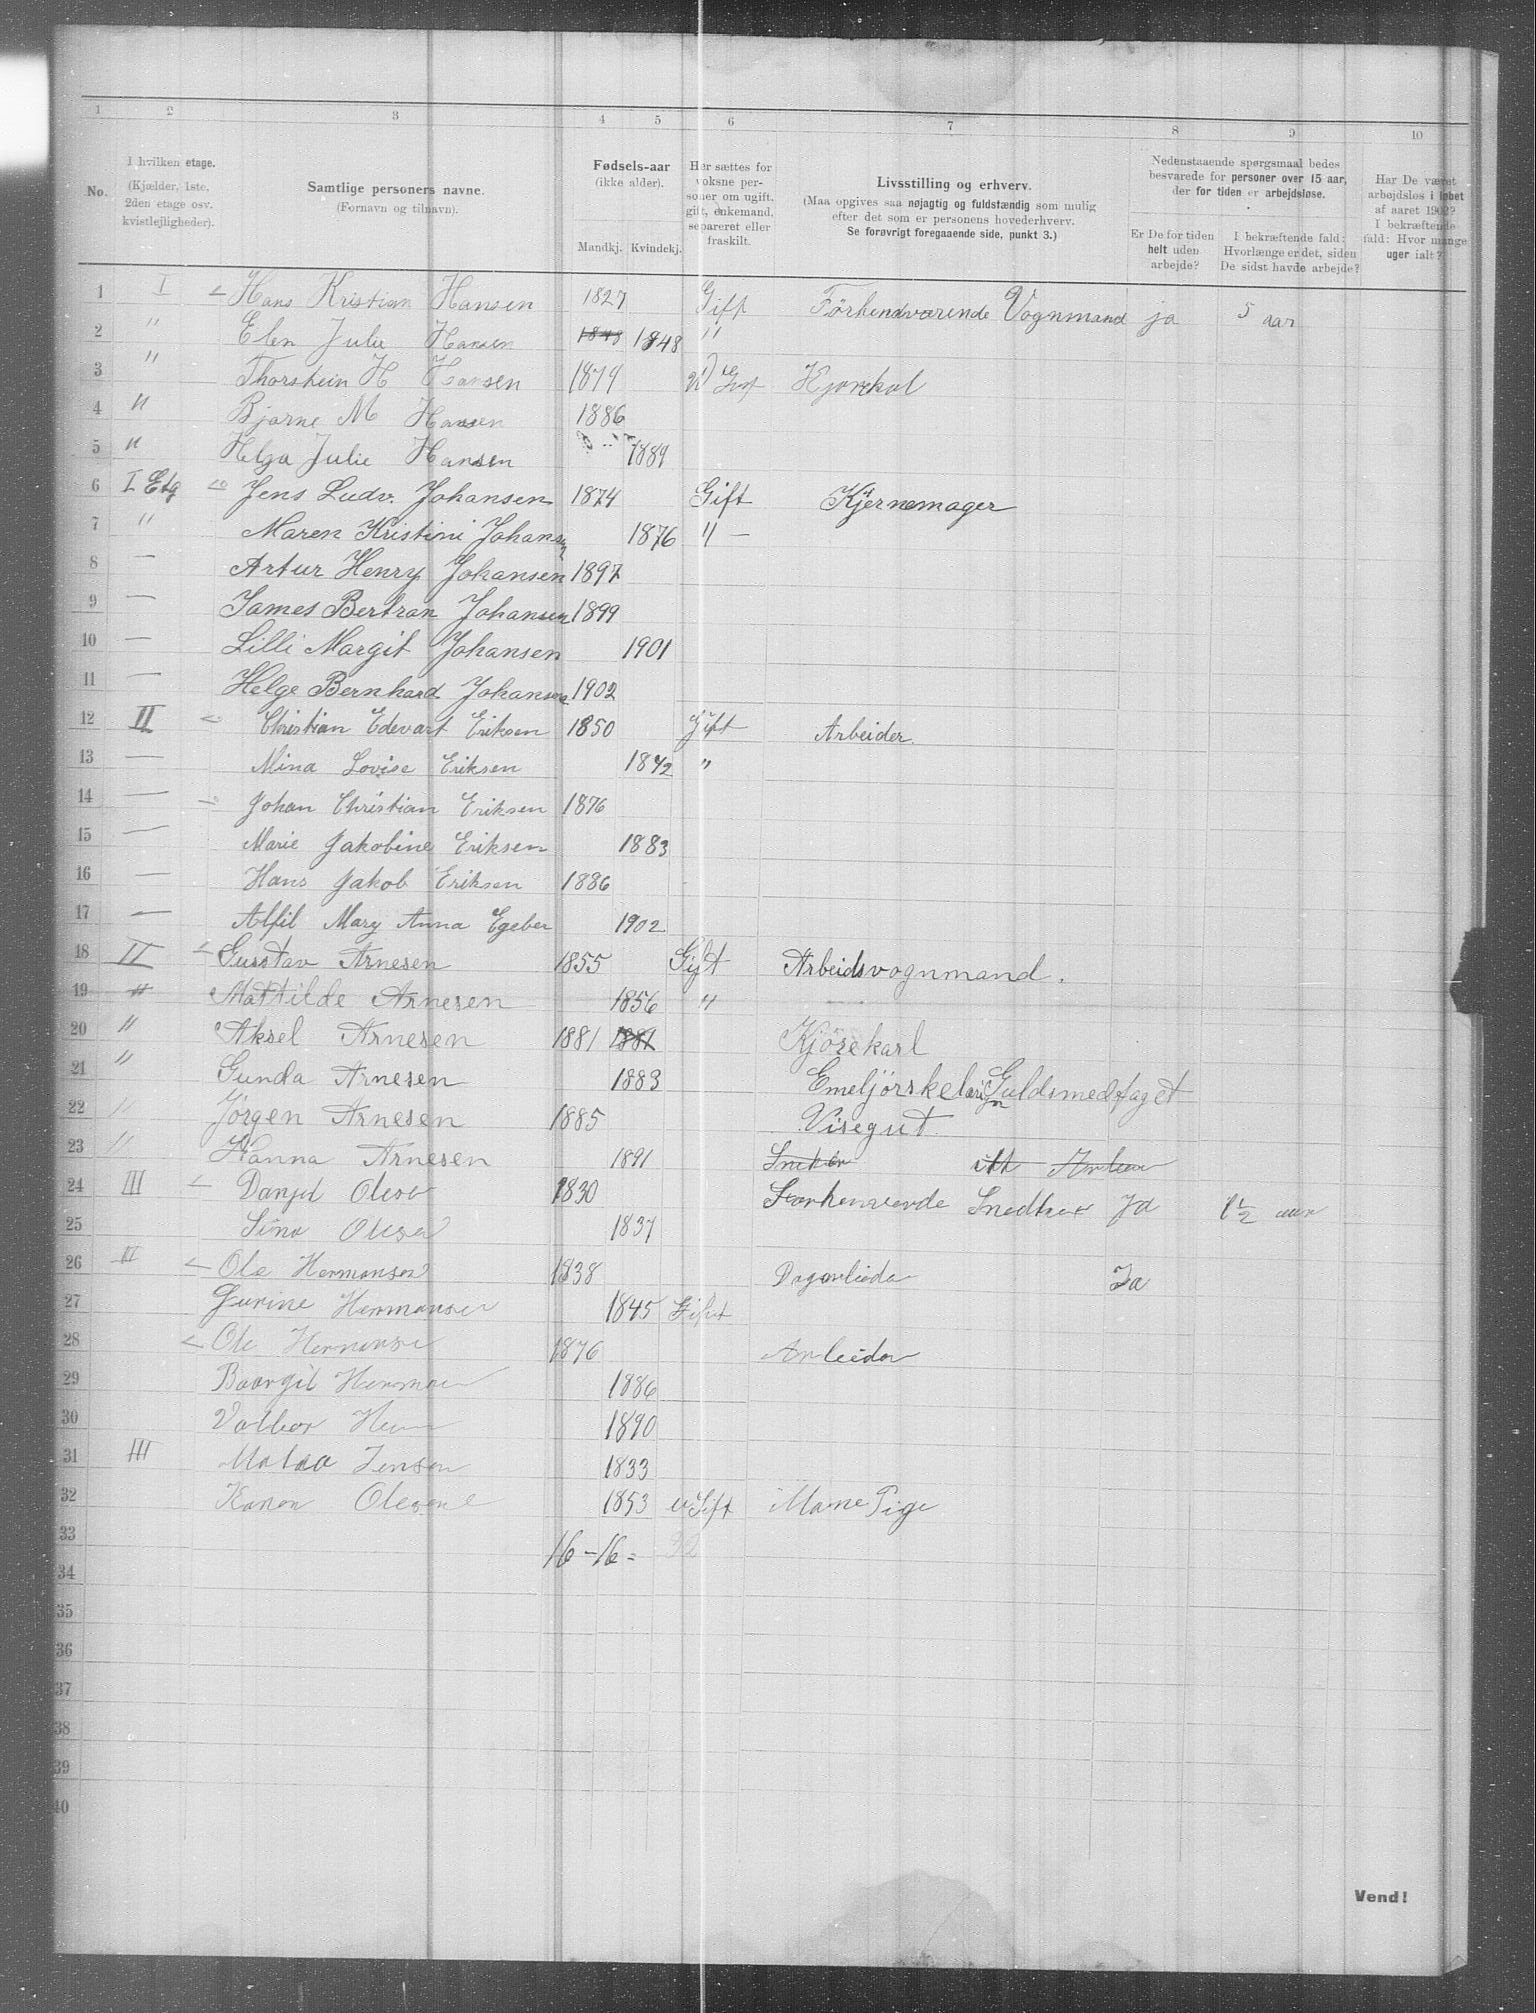 1 2 3 4 5 6 7 8 9 10
No.
I hvilken etage.
(Kjælder, 1ste,
2den etage osv.
kvistlejligheder).
Samtlige personers navne.
(Fornavn og tilnavn).
Fødsels-aar
(ikke alder).
Mandkj. Kvindekj.
Her sættes for
voksne per-
soner om ugift,
gift, enkemand,
separeret eller
fraskilt.
Livsstilling og erhverv.
(Maa opgives saa nøjagtig og fuldstændig som mulig
efter det som er personens hovederhverv.
Se forøvrigt foregaaende side, punkt 3.)
Nedenstaaende spørgsmaal bedes
besvarede for personer over 15 aar,
der for tiden er arbejdsløse.
Er De for tiden
helt uden
arbejde?
I bekræftende fald:
Hvorlænge er det, siden
De sidst havde arbejde?
Har De været
arbejdsløs i løbet
af aaret 1902?
I bekræftende
fald: Hvor mange
uger ialt?
1 I Hans Kristian Hansen 1827 Gift Förhendværende Vognmand ja 5 aar
2 " Elen Julie Hansen 1848 1848 "
3 " Thorstein H Hansen 1879
4 " Bjarne M Hansen 1886
5 " Helga Julie Hansen 1889
6 I Etg Jens Ludv. Johansen 1874 Gift Kjernemager
7 " Maren Kristini Johansen 1876 " —
8 — Artur Henry Johansen 1897
9 — James Bertran Johansen 1899
10 — Lilli Margit Johansen 1901
11 — Helge Bernhard Johansen 1902
12 II Christian Edevart Eriksen 1850 Gift Arbeider.
13 — Mina Lovise Eriksen 1842 "
14 — Johan Christian Eriksen 1876
15 — Marie Jakobine Eriksen 1883
16 — Hans Jakob Eriksen 1886
17 — Alfil Mary Anna Egeber 1902
18 II Gusstav Arnesen 1855 Gift Arbeidsvognmand.
19 " Mattilde Arnesen 1856 "
20 " Aksel Arnesen 1881 1881 Kjörekarl
21 " Gunda Arnesen 1883 Guldsmedfaget
22 " Jørgen Arnesen 1885 Visegut
23 " Hanna Arnesen 1891
24 III Olsen 1830 Snedker Ja 1½ aar
25 Olsen 1837
26 II Ole Hermansen 1838 Ja
27 Gurine Hermansen 1845 Gift
28 Ole Hermansen 1876 Arbeider
29 1886
30 1890
31 III Jensen 1833
32 Karen Olsen 1853 uGift Pige
33 16 – 16 = 32
34
35
36
37
38
39
40
Vend!